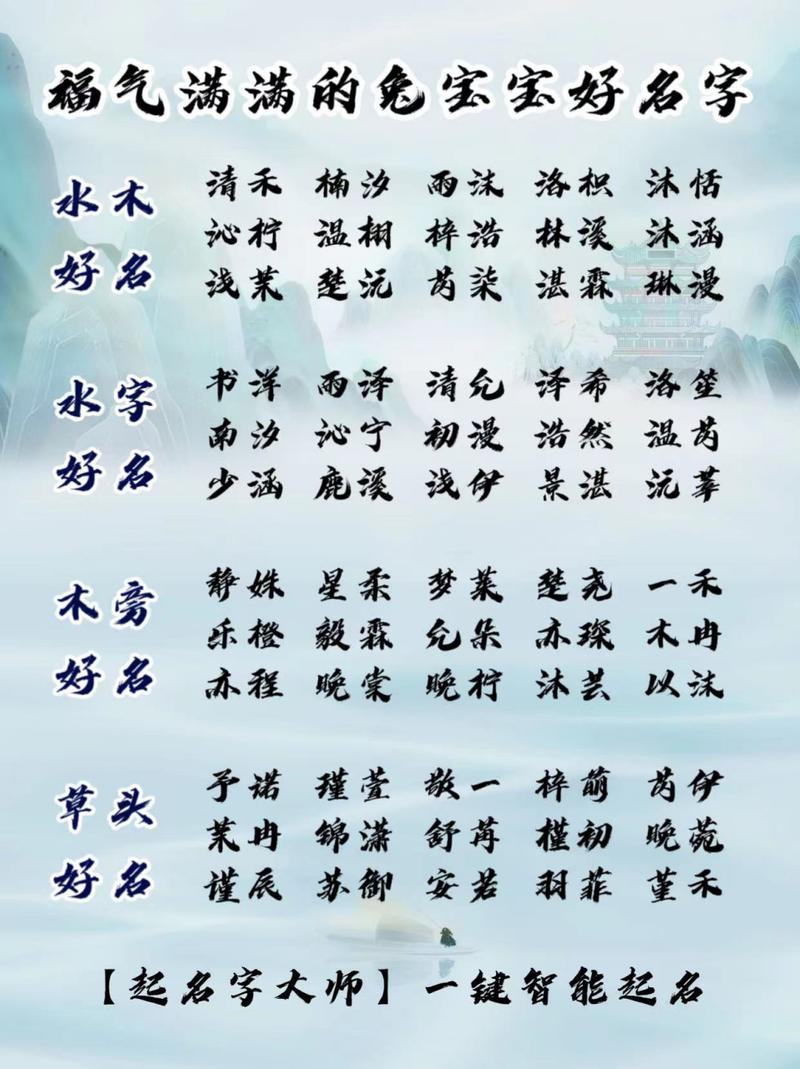 福气满满的兔宝宝好名字
水木
好名
清禾 楠汐 雨沫 洛枳 沐恬
沁柠 温栩 梓浩 林溪 沐涵
浅茉 楚沅 芮柒 湛霖 琳漫
水字
好名
书洋 雨泽 清允 泽希 洛笙
南汐 沁宁 初漫 浩然 温芮
少涵 鹿溪 浅伊 景湛 沅莘
木旁
好名
静姝 星柔 梦莱 楚尧 一禾
乐橙 毅霖 允朵 亦琛 木冉
亦程 晚棠 晚柠 沐芸 以沫
草头
好名
予诺 瑾萱 敬一 梓萌 芮伊
茉冉 锦潇 舒苒 槿初 晚菀
谨辰 苏御 安若 羽菲 堇禾
【起名字大师】一键智能起名